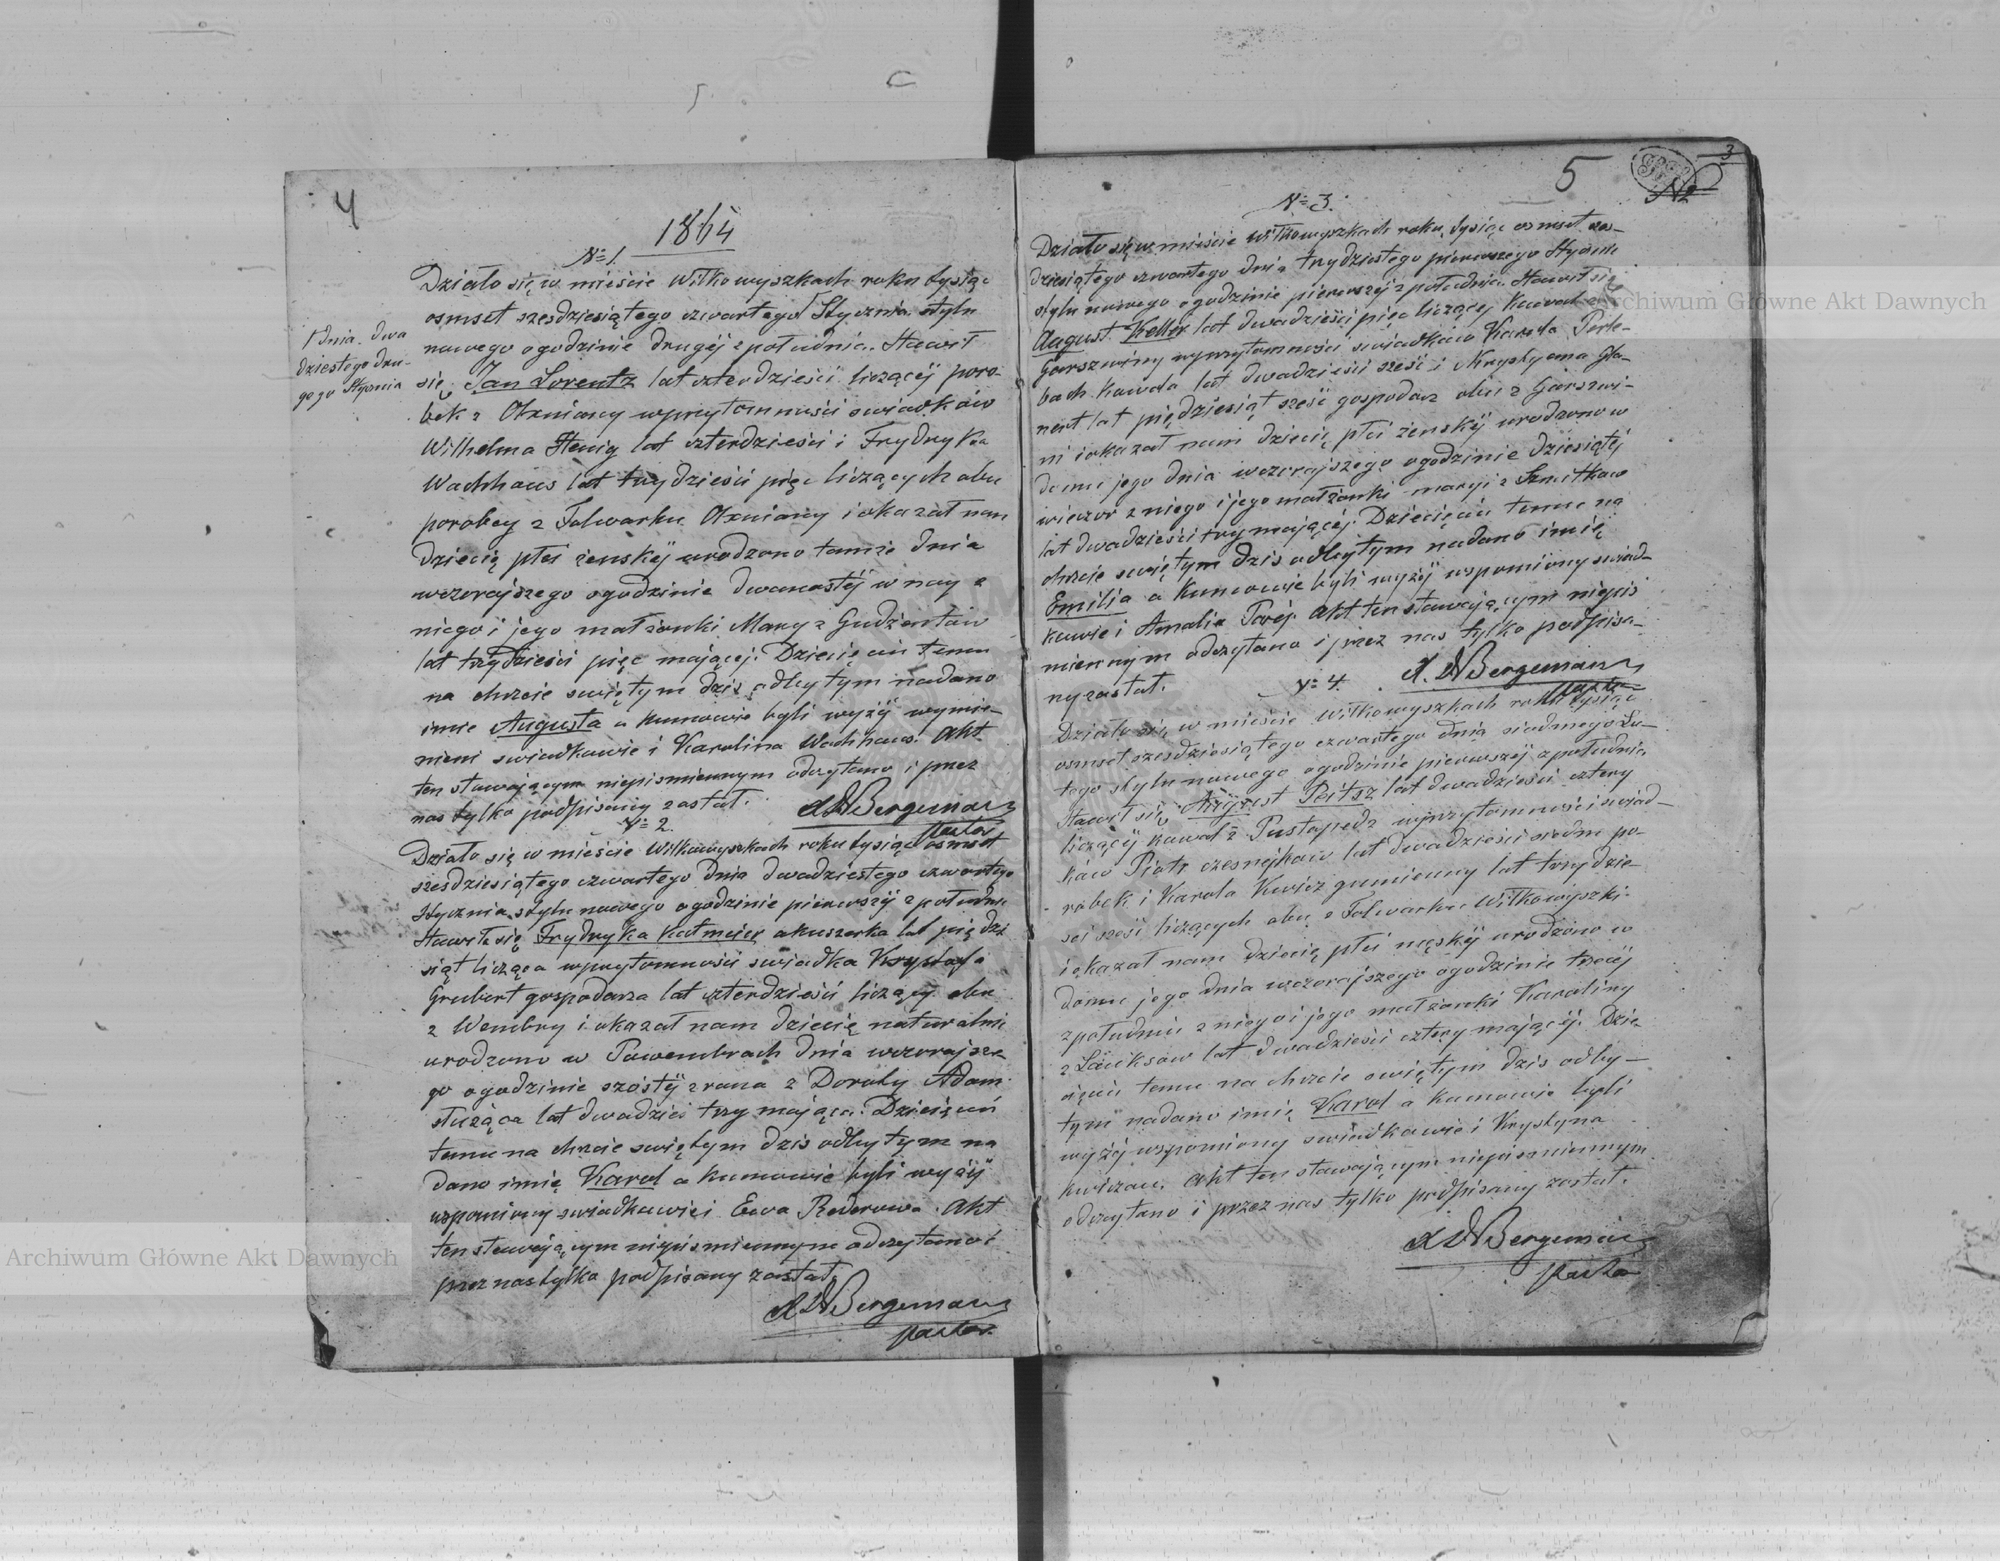 4
1864
N=1.
Działo się w mieście Wiłkowyszkach roku tysiąc
osmset szesdziesiątego czwartego Stycznia stylu
1 dnia dwa
dziestego dru-
giego Stycznia
nowego ogodzinie drugiéj z południa. Stawił
się Jan Lorentz lat czterdzieści liczącéj paro-
bek z Oxniany wprzytomności swiadków
Wilhelma Henig lat czterdzieści i Frydryka
Wachhaus lat trzydzieści pięc liczących obu
parobcy z Folwarku Oxniany i okazał nam
Dziecię płci żenskiéj urodzono tamże dnia
wczorajszego ogodzinie dwunastéj w nocy z
niego i jego małżonki Maryi z Gudzentów
lat trzydzieści pięc mającej. Dziecięciu temu
na chrzcie swiętym dziś odbytym nadano
imie Augusta a kumowie byli wyżéj wymie-
nieni swiadkowie i Karolina Wachhaus. Akt
ten stawającym niepismiennym odczytano i przez
nas tylko podpisany został.
Bergemann
Pastor
N=2.
Działo się w mieście Wiłkowyszkach roku tysiąc osmset
szesdziesiątego czwartego dnia dwadziestego czwartego
Stycznia stylu nowego ogodzinie pierwszéj z południa
Stawiła się Frydryka Katmeier akuszerka lat pięćdzi
siąt licząca wprzytomności swiadka Krysztofa
Grubert gospodarza lat czterdzieści liczący obu
z Wembry i okazał nam dziecię naturalnie
urodzono w Powembrach dnia wczorajsze
go ogodzinie szostéj zrana z Doroty Adam
służąca lat dwadzieści trzy mająca. Dziecięciu
temu na chrzcie swiętym dziś odbytym na
dano imię Karol a kumowie byli wyżéj
wspomiony swiadkowie i Ewa Rederowa. Akt
ten stawającym niepismiennym odczytano i
przez nas tylko podpisany został
Bergemann
Pastor.
5
3
N=3.
Działo się w mieście Wiłkowyszkach roku tysiąc osmset szes-
dziesiątego czwartego dnia trzydziestego pierwszego Stycznia
stylu nowego ogodzinie pierwszéj z południa. Stawił się
August Keller lat dwadzieści pięc liczący kowal z
Garszwiny wprzytomności swiadków Karola Perle-
bach kowala lat dwadzieści sześć i Krystyana Gla-
nert lat pięćdziesiąt sześć gospodarz obu z Garszwi-
ni i okazał nam dziecię płci żenskiéj urodzono w
domu jego dnia wczorajszego ogodzinie dziesiątéj
wieczor z niego i jego małżonki Maryi z Szmitkow
lat dwadzieści trzy mającéj. Dziecięciu temu na
chrzcie swiętym dziś odbytym nadano imię
Emilia a kumowie byli wyżéj wspomiony swiad-
kowie i Amalia Akt ten stawającym niepis
miennym odczytano i przez nas tylko podpisa-
ny został.
Bergemann
Pastor
N=4.
Działo się w mieście Wiłkowyszkach roku tysiąc
osmset szesdziesiątego czwartego dnia siodmego Lu-
tego stylu nowego ogodzinie pierwszéj z południa
Stawił się August Peitsz lat dwadzieści cztery
liczącéj kowal z Pustapedz wprzytomności swiad-
ków Piotr czesnejkow lat dwadzieści siedm pa-
robek i Karola Kwicz gumienny lat trzydzie-
sci sześć liczących obu z Folwarku Wiłkowyszki
i okazał nam dziecię płci męskiéj urodzono w
domu jego dnia wczorajszego ogodzinie trzeciéj
zpołudnia z niego i jego małżonki Karoliny
z Lauksow lat dwadzieści cztery mającéj. Dzie-
cięciu temu na chrzcie swiętym dziś odby-
tym nadano imię Karol a kumowie byli
wyżéj wspomiony swiadkowie i Krystyna
Kwiczow. Akt ten stawającym niepismiennym
odczytano i przez nas tylko podpisany został.
Bergemann
Pastor
Archiwum Główne Akt Dawnych
Archiwum Główne Akt Dawnych